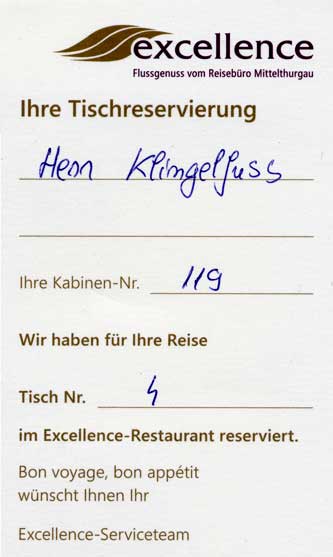 excellence
Flussgenuss vom Reisebüro Mittelthurgau
Ihre Tischreservierung
Herr Klingelfuss
Ihre Kabinen-Nr. 119
Wir haben für Ihre Reise
Tisch Nr. 4
im Excellence-Restaurant reserviert.
Bon voyage, bon appétit
wünscht Ihnen Ihr
Excellence-Serviceteam